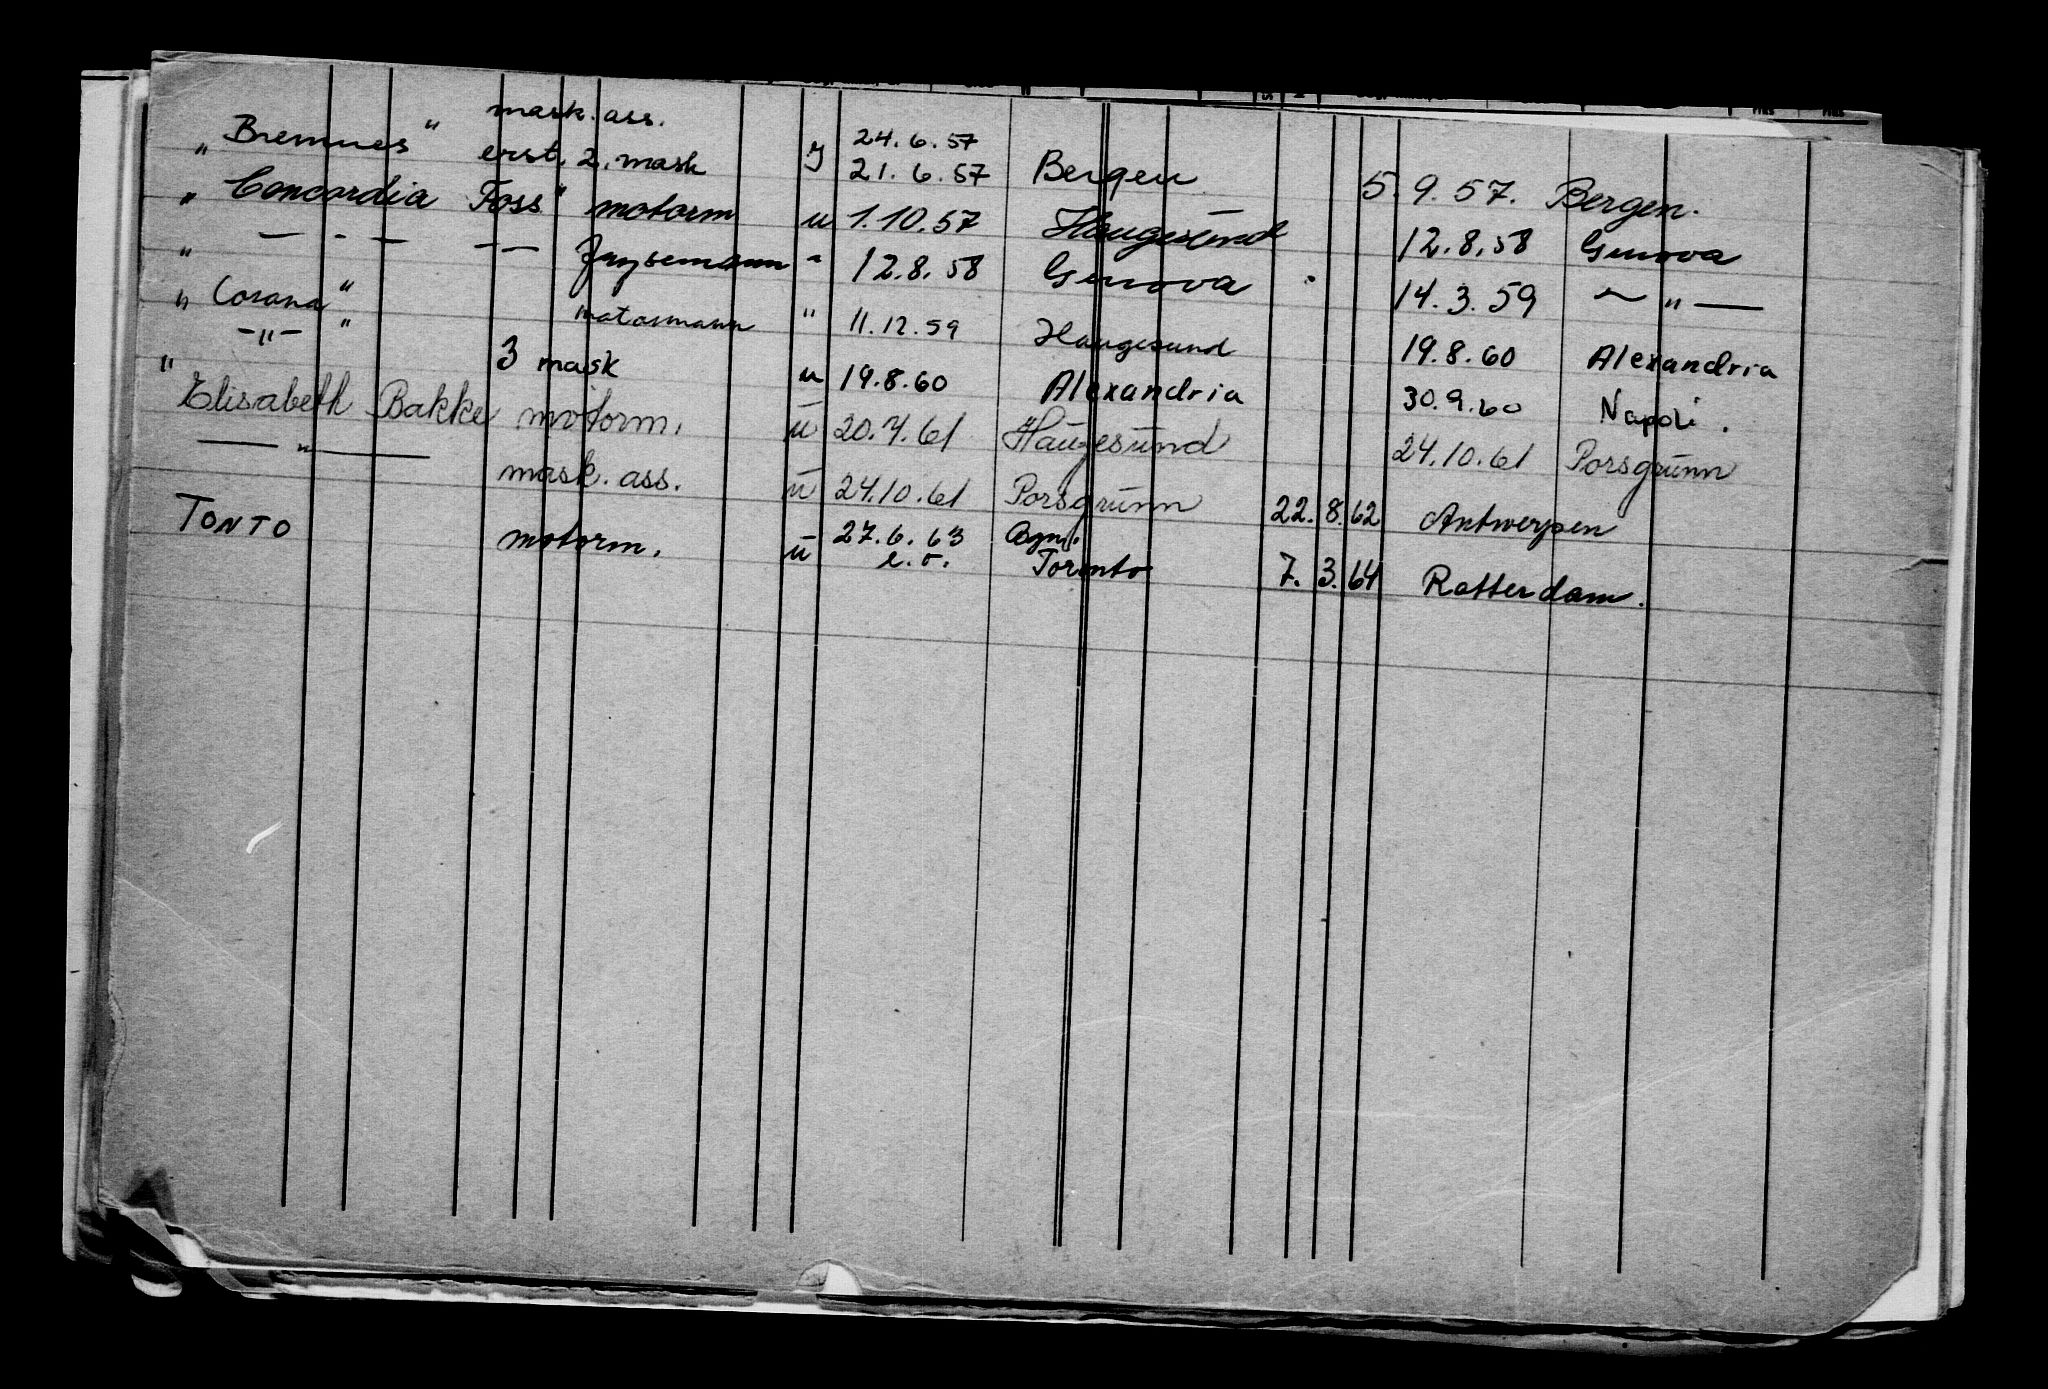 mask. ass. 24.6.57
„ Bremnes " erst. 2. mask y 21.6.57 Bergen 5.9.57. Bergen.
„ Concordia Foss" motorm u 1.10.57 Haugesund 12.8.58 Genova
„ — - — — — frysemann " 12.8.58 Genova 14.3.59 — „ —
„ Corona " motormann " 11.12.59 Haugesund 19.8.60 Alexandria
—"— " 3 mask u 19.8.60 Alexandria 30.9.60 Napoli.
" Elisabeth Bakke motorm. u 20.4.61 Haugesund 24.10.61 Porsgrunn
— " — mask. ass. u 24.10.61 Porsgrunn 22.8.62 Antwerpen
TONTO motorm. u 27.6.63 Toronto 7.3.64 Rotterdam.